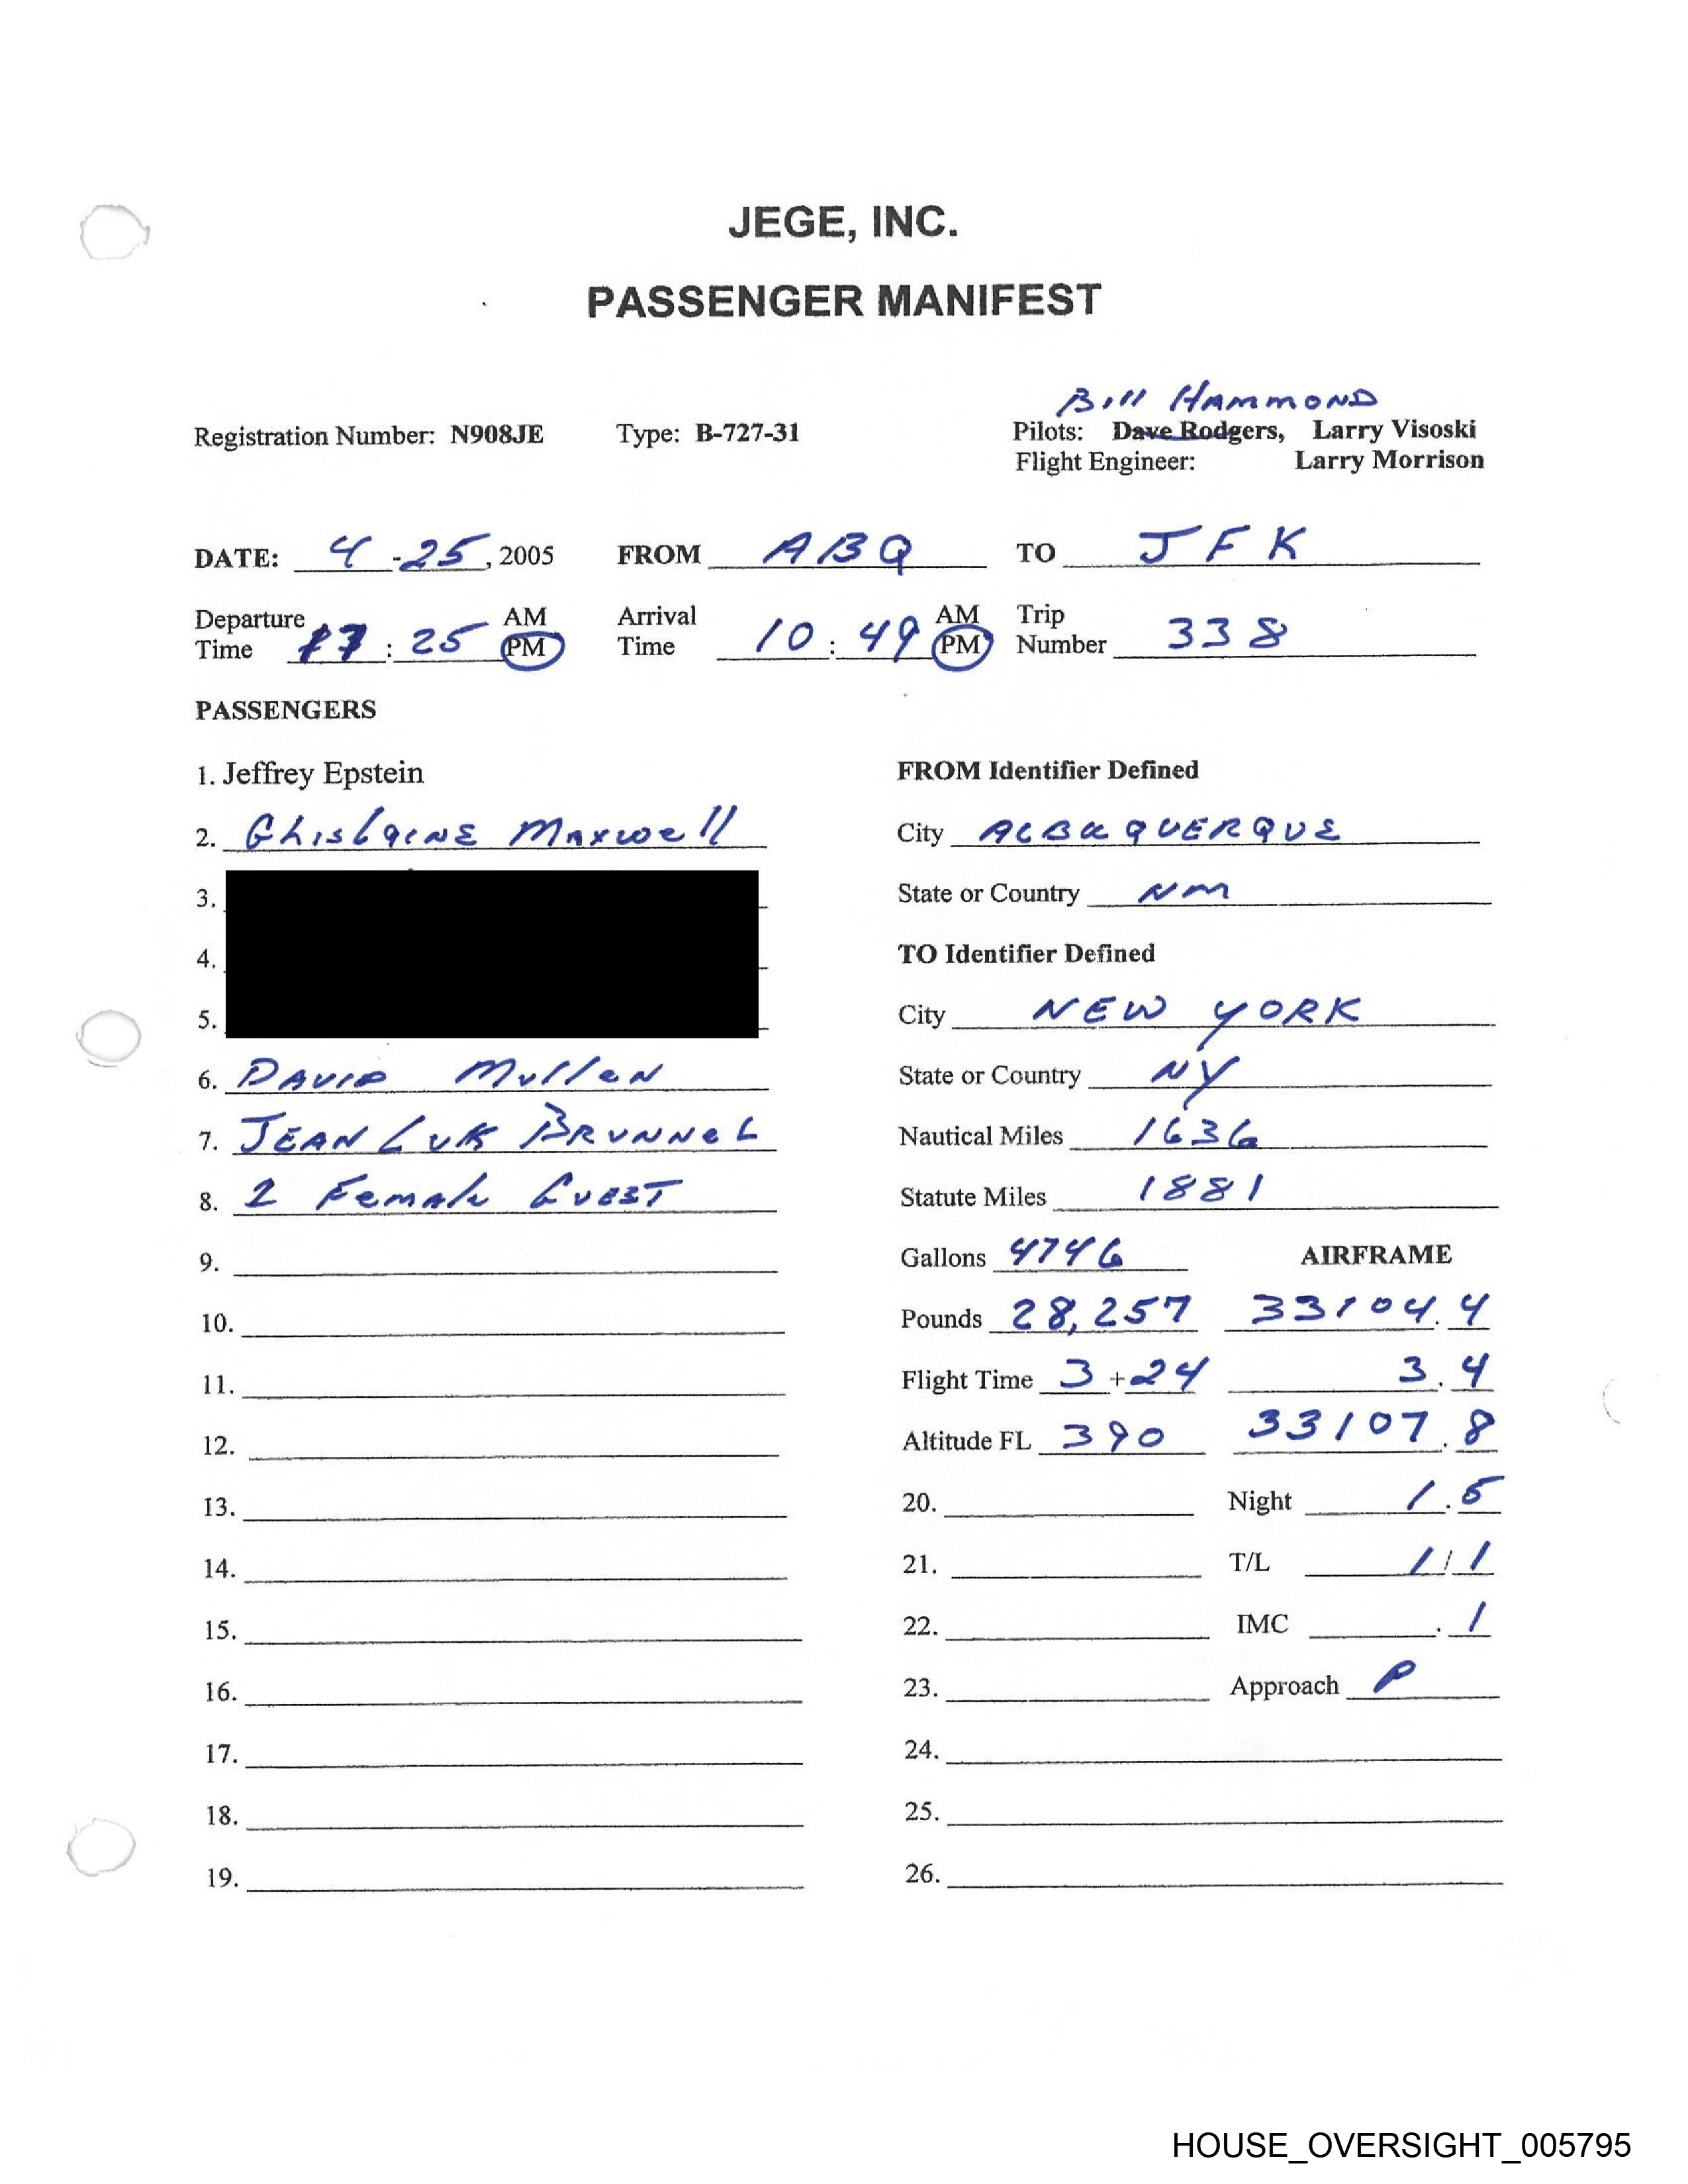 JEGE, INC.
PASSENGER MANIFEST
Bill HAMMOND
Registration Number: N908JE Type: B-727-31 Pilots: Dave Rodgers, Larry Visoski
Flight Engineer: Larry Morrison
DATE: 4-25, 2005 FROM ABQ TO JFK
Departure Time 7:25 AM PM Arrival Time 10:49 AM PM Trip Number 338
PASSENGERS
1. Jeffrey Epstein FROM Identifier Defined
2. Ghislaine Maxwell City ALBUQUERQUE
3. State or Country NM
4. TO Identifier Defined
5. City NEW YORK
6. DAVID Mullen State or Country NY
7. JEAN LUK BRUNNEL Nautical Miles 1636
8. 2 Female GUEST Statute Miles 1881
9. Gallons 4746 AIRFRAME
10. Pounds 28,257 33104.4
11. Flight Time 3+24 3.4
12. Altitude FL 390 33107.8
13. 20. Night 1.5
14. 21. T/L 1/1
15. 22. IMC .1
16. 23. Approach P
17. 24.
18. 25.
19. 26.
HOUSE_OVERSIGHT_005795